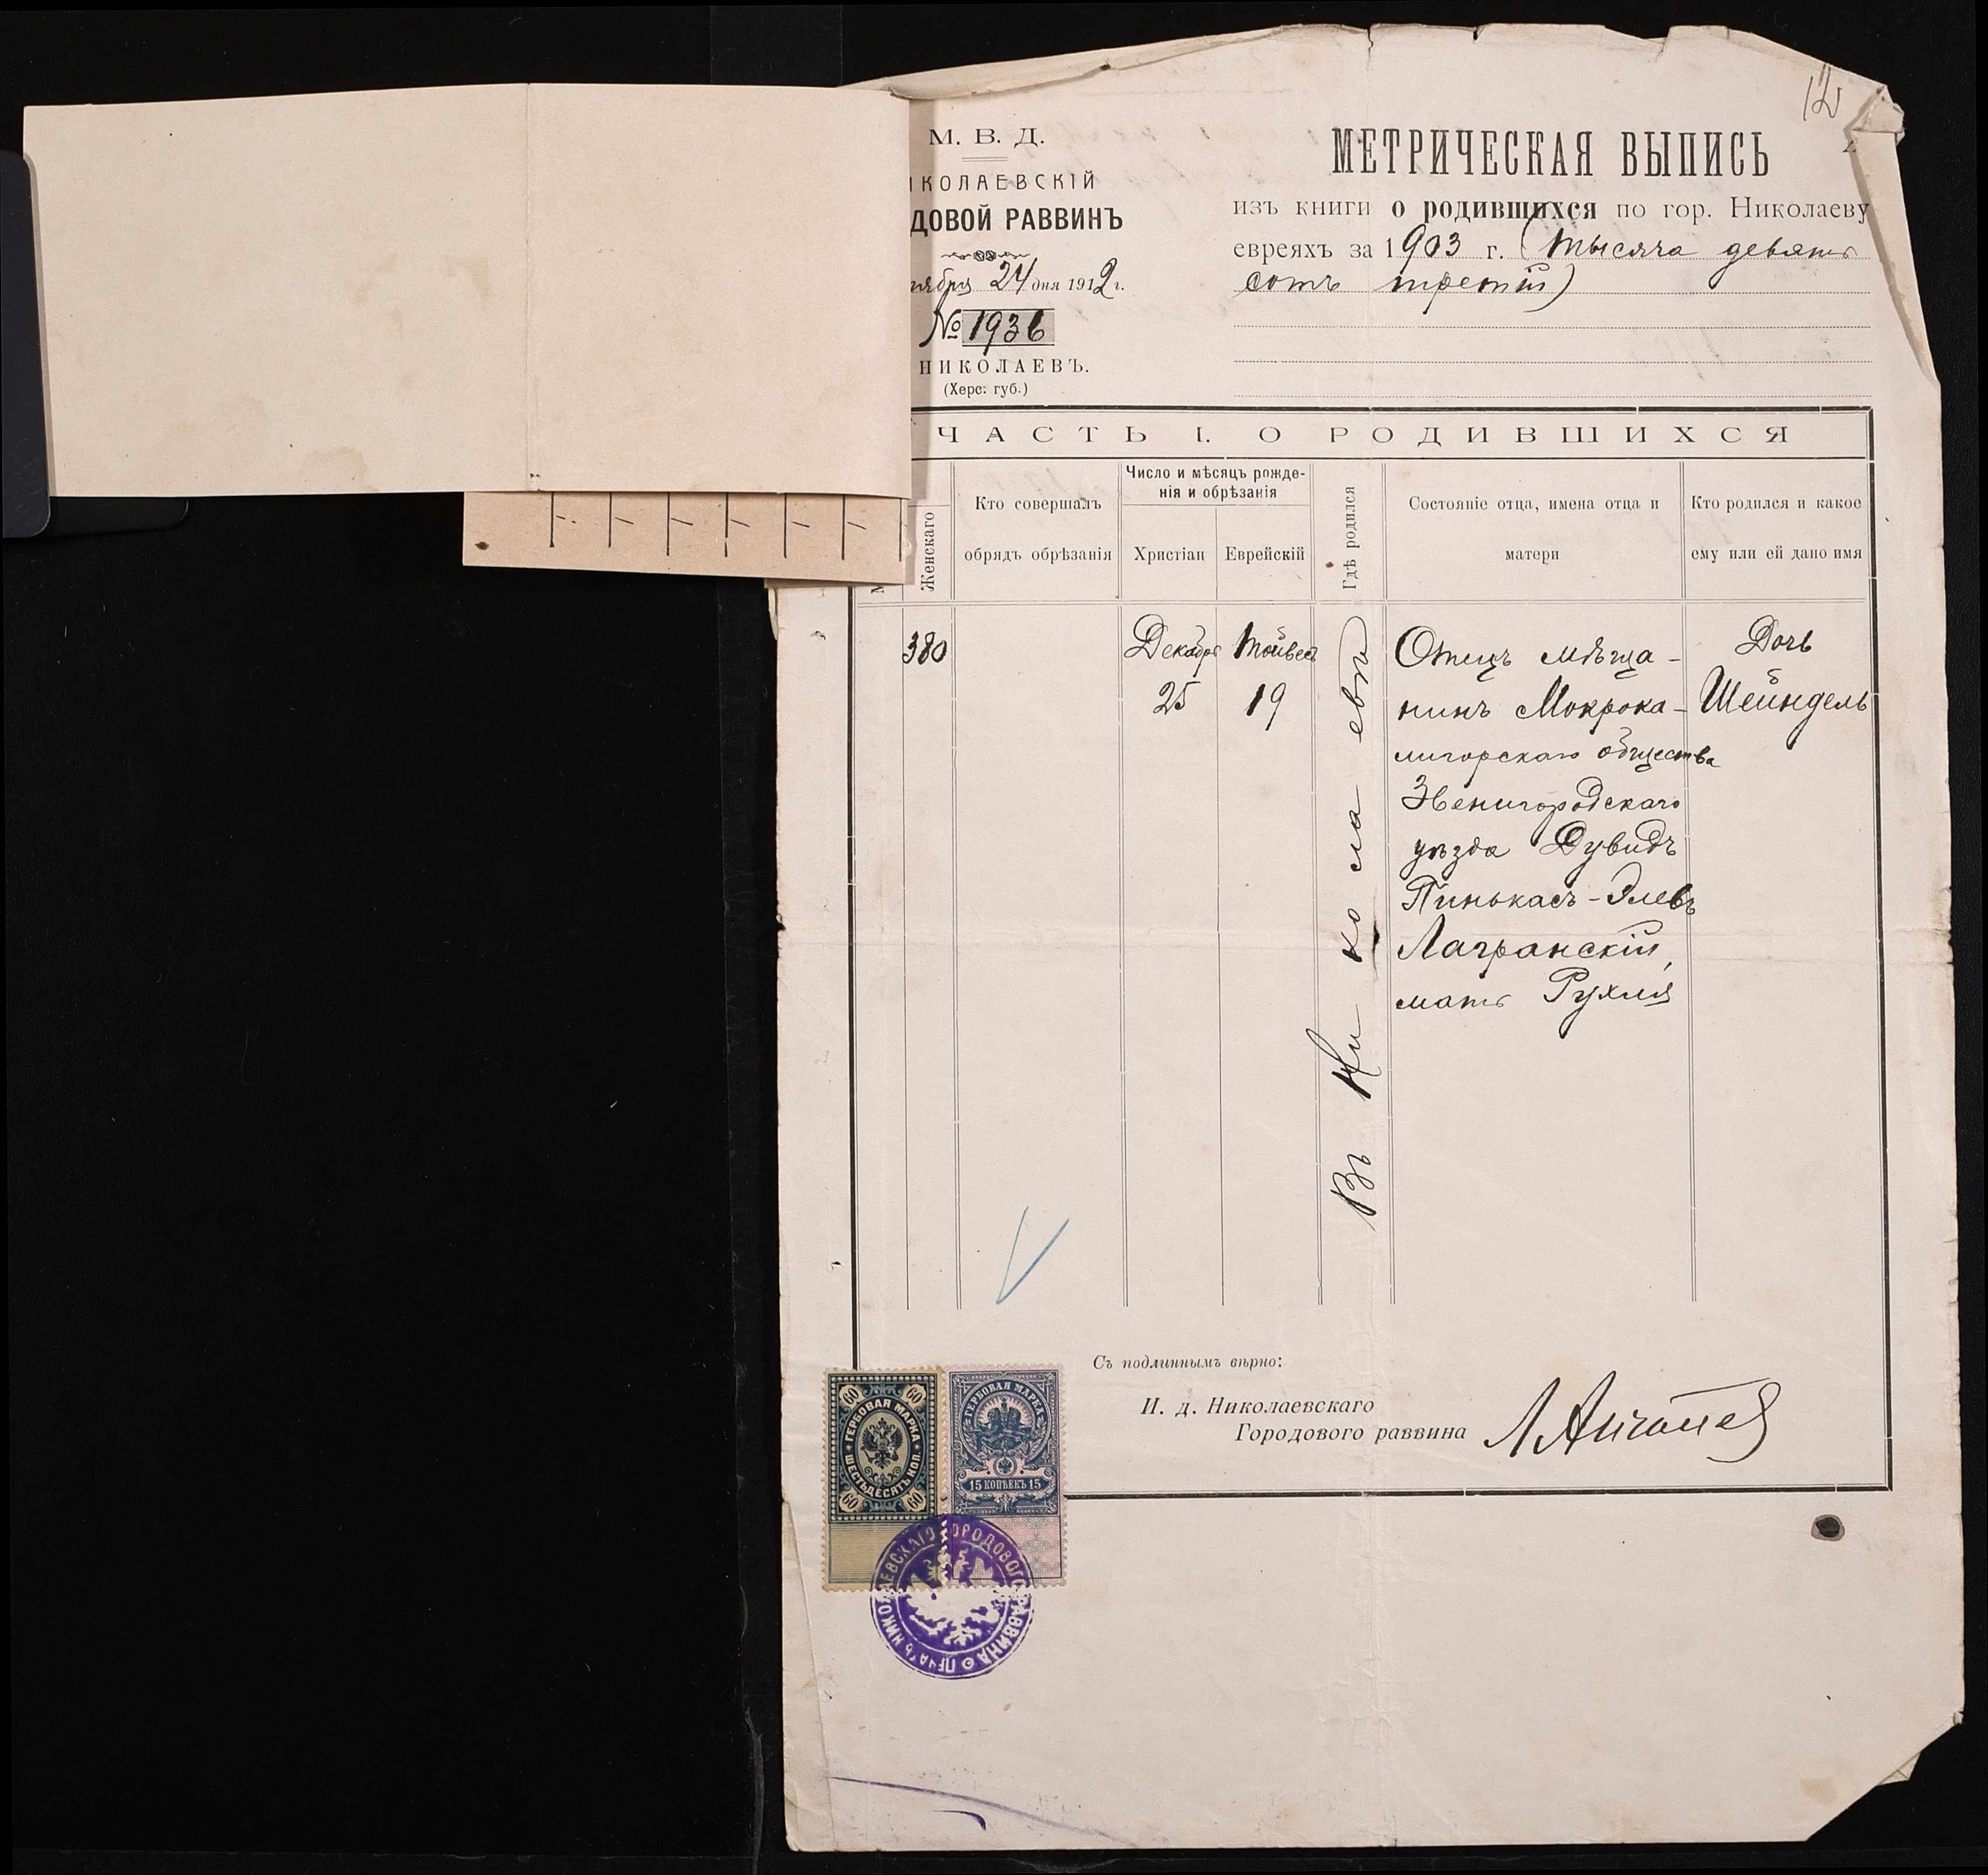 12
М. В. Д.
ИКОЛАЕВСКІЙ
ДОВОЙ РАВВИНЪ
тября 24 дня 1912 г.
№ 1936
НИКОЛАЕВЪ.
(Херс. губ.)
МЕТРИЧЕСКАЯ ВЫПИСЬ
изъ книги о родившихся по гор. Николаеву
евреяхъ за 1903 г. (тысяча девять
сотъ третій)
ЧАСТЬ I. О РОДИВШИХСЯ
Женскаго
Кто совершалъ
обрядъ обрѣзанія
Число и мѣсяцъ рожде-
нія и обрѣзанія
Христіан
Еврейскій
Гдѣ родился
Состояніе отца, имена отца и
матери
Кто родился и какое
ему или ей дано имя
380
Декабря
25
Тойвес
19
Въ Николаевѣ
Отецъ мѣща-
нинъ Мокрока-
лигорскаго общества
Звенигородскаго
уѣзда Дувидъ
Пинькасъ-Элевъ
Лагранскій,
мать Рухля
Дочь
Шейндель
Съ подлиннымъ вѣрно:
И. д. Николаевскаго
Городового раввина
60 60
ГЕРБОВАЯ МАРКА
ШЕСТЬДЕСЯТЪ КОП.
60 60
ГЕРБОВАЯ МАРКА
15 КОПѢЕКЪ 15
ПЕЧАТЬ НИКОЛАЕВСКАГО ГОРОДОВОГО РАВВИНА